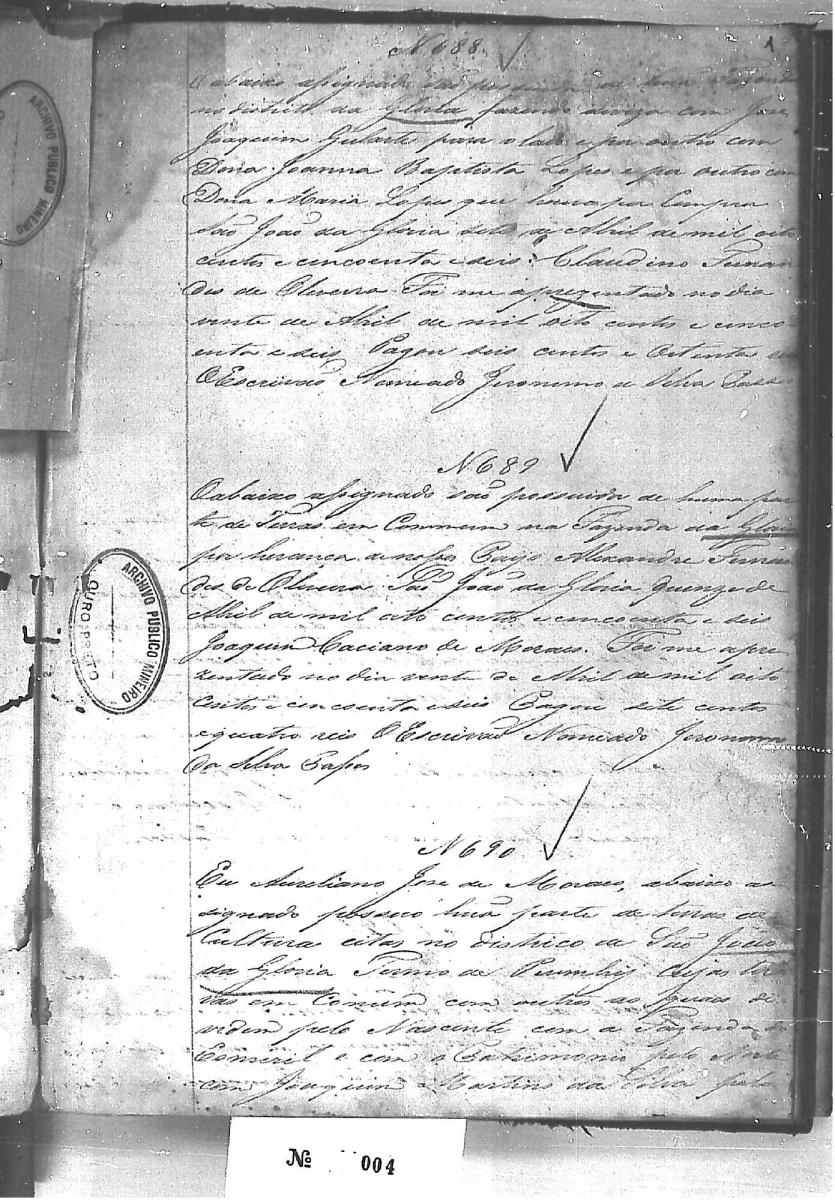 N 688
1
O abaixo assignado são possuidor de huma Fazenda
no districto da Gloria fazendo diviza com José
Joaquim Gularte para o lado e por outro com
Dona Joanna Baptista Lopes e por outro com
Dona Maria Lopes que houve por Compra
São João da Gloria sete de Abril de mil oito
centos e cincoenta e seis. Claudino Fernan
des de Oliveira Foi me aprezentado no dia
vente de Abril de mil oito centos e cinco
enta e seis Pagou seis centos e oitenta reis
O Escrivão Nomeado Jeronimo da Silva Passos
N 689
O abaixo assignado são possuida de huma par
te de Terras em Commum na Fazenda da Gloria
por herança de nosso Pay Alexandre Fernan
des de Oliveira São João da Gloria quinze de
Abril de mil oito centos e cincoenta e seis
Joaquim Caciano de Moraes. Foi me apre
zentado no dia vente de Abril de mil oito
centos e cincoenta e seis Pagou sete centos
e quatro reis O Escrivão Nomeado Jeronimo
da Silva Passos
N 690
Eu Aureliano Jose de Moraes, abaixo as
signado possuo huã parte de terras de
Cultura citas no districo de São João
da Gloria Termo de Piumhy cujas ter
ras em Comum com outros as quaes di
videm pelo Nascente com a Fazenda do
e com o Patrimonio pelo Norte
com Joaquim Martins da Silva pelo
ARCHIVO PUBLICO MINEIRO
ARCHIVO PUBLICO MINEIRO
OURO PRETO
Nº 004